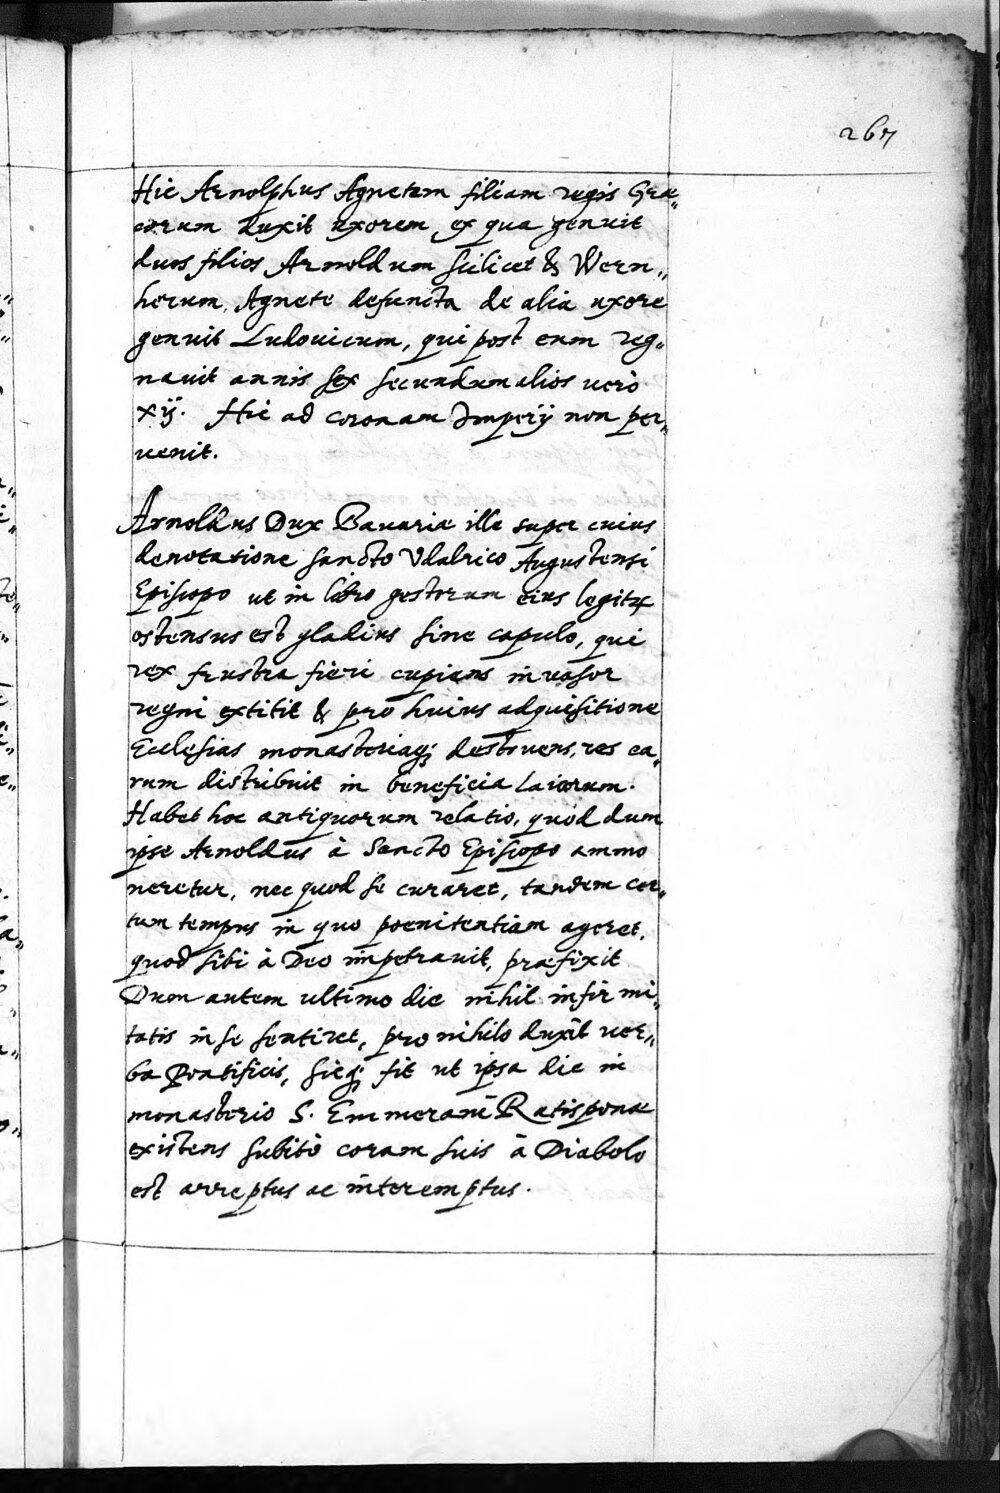 267
Hic Arnolphus Agnetem filiam regis Græ„
corum duxit uxorem, ex qua genuit
duos filios Arnoldum scilicet & Wern„
herum. Agnete defuncta de alia uxore
genuit Ludouicum, qui post eum reg„
nauit annis sex secundum alios uerò
xij. Hic ad coronam Imperij non per„
uenit.
Arnoldus Dux Bauariæ ille super cuius
denotatione sancto Vdalrico Augustensi
Episcopo ut in libro gestorum eius legitur
ostensus est gladius sine capulo, qui
rex frustra fieri cupiens inuasor
regni extitit & pro huius adquisitione
Ecclesias monasteriaq; destruens, res ea„
rum distribuit in beneficia Laicorum.
Habet hoc antiquorum relatio, quod dum
ipse Arnoldus à Sancto Episcopo ammo
neretur, nec quod se curaret, tandem cer„
tum tempus in quo poenitentiam ageret,
quod sibi à Deo impetrauit, præfixit
Dum autem ultimo die nihil infirmi„
tatis in se sentiret, pro nihilo duxit uer„
ba Pontificis, sicq; fit ut ipsa die in
monasterio S. Emmerami Ratisponæ
existens subitò coram suis à Diabolo
est arreptus ac interemptus.